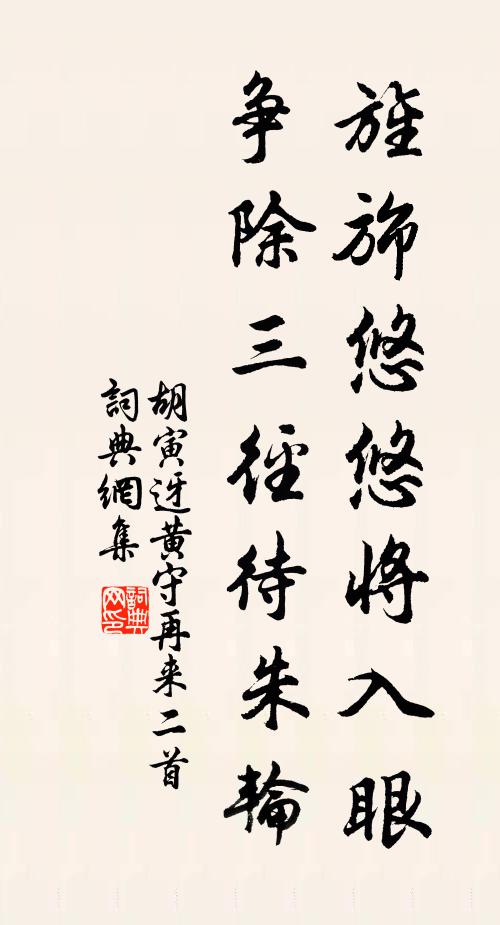 旌旆悠悠將入眼
争除三徑待朱輪
胡寅迓黄守再来二首
詞典網集
詞典网印